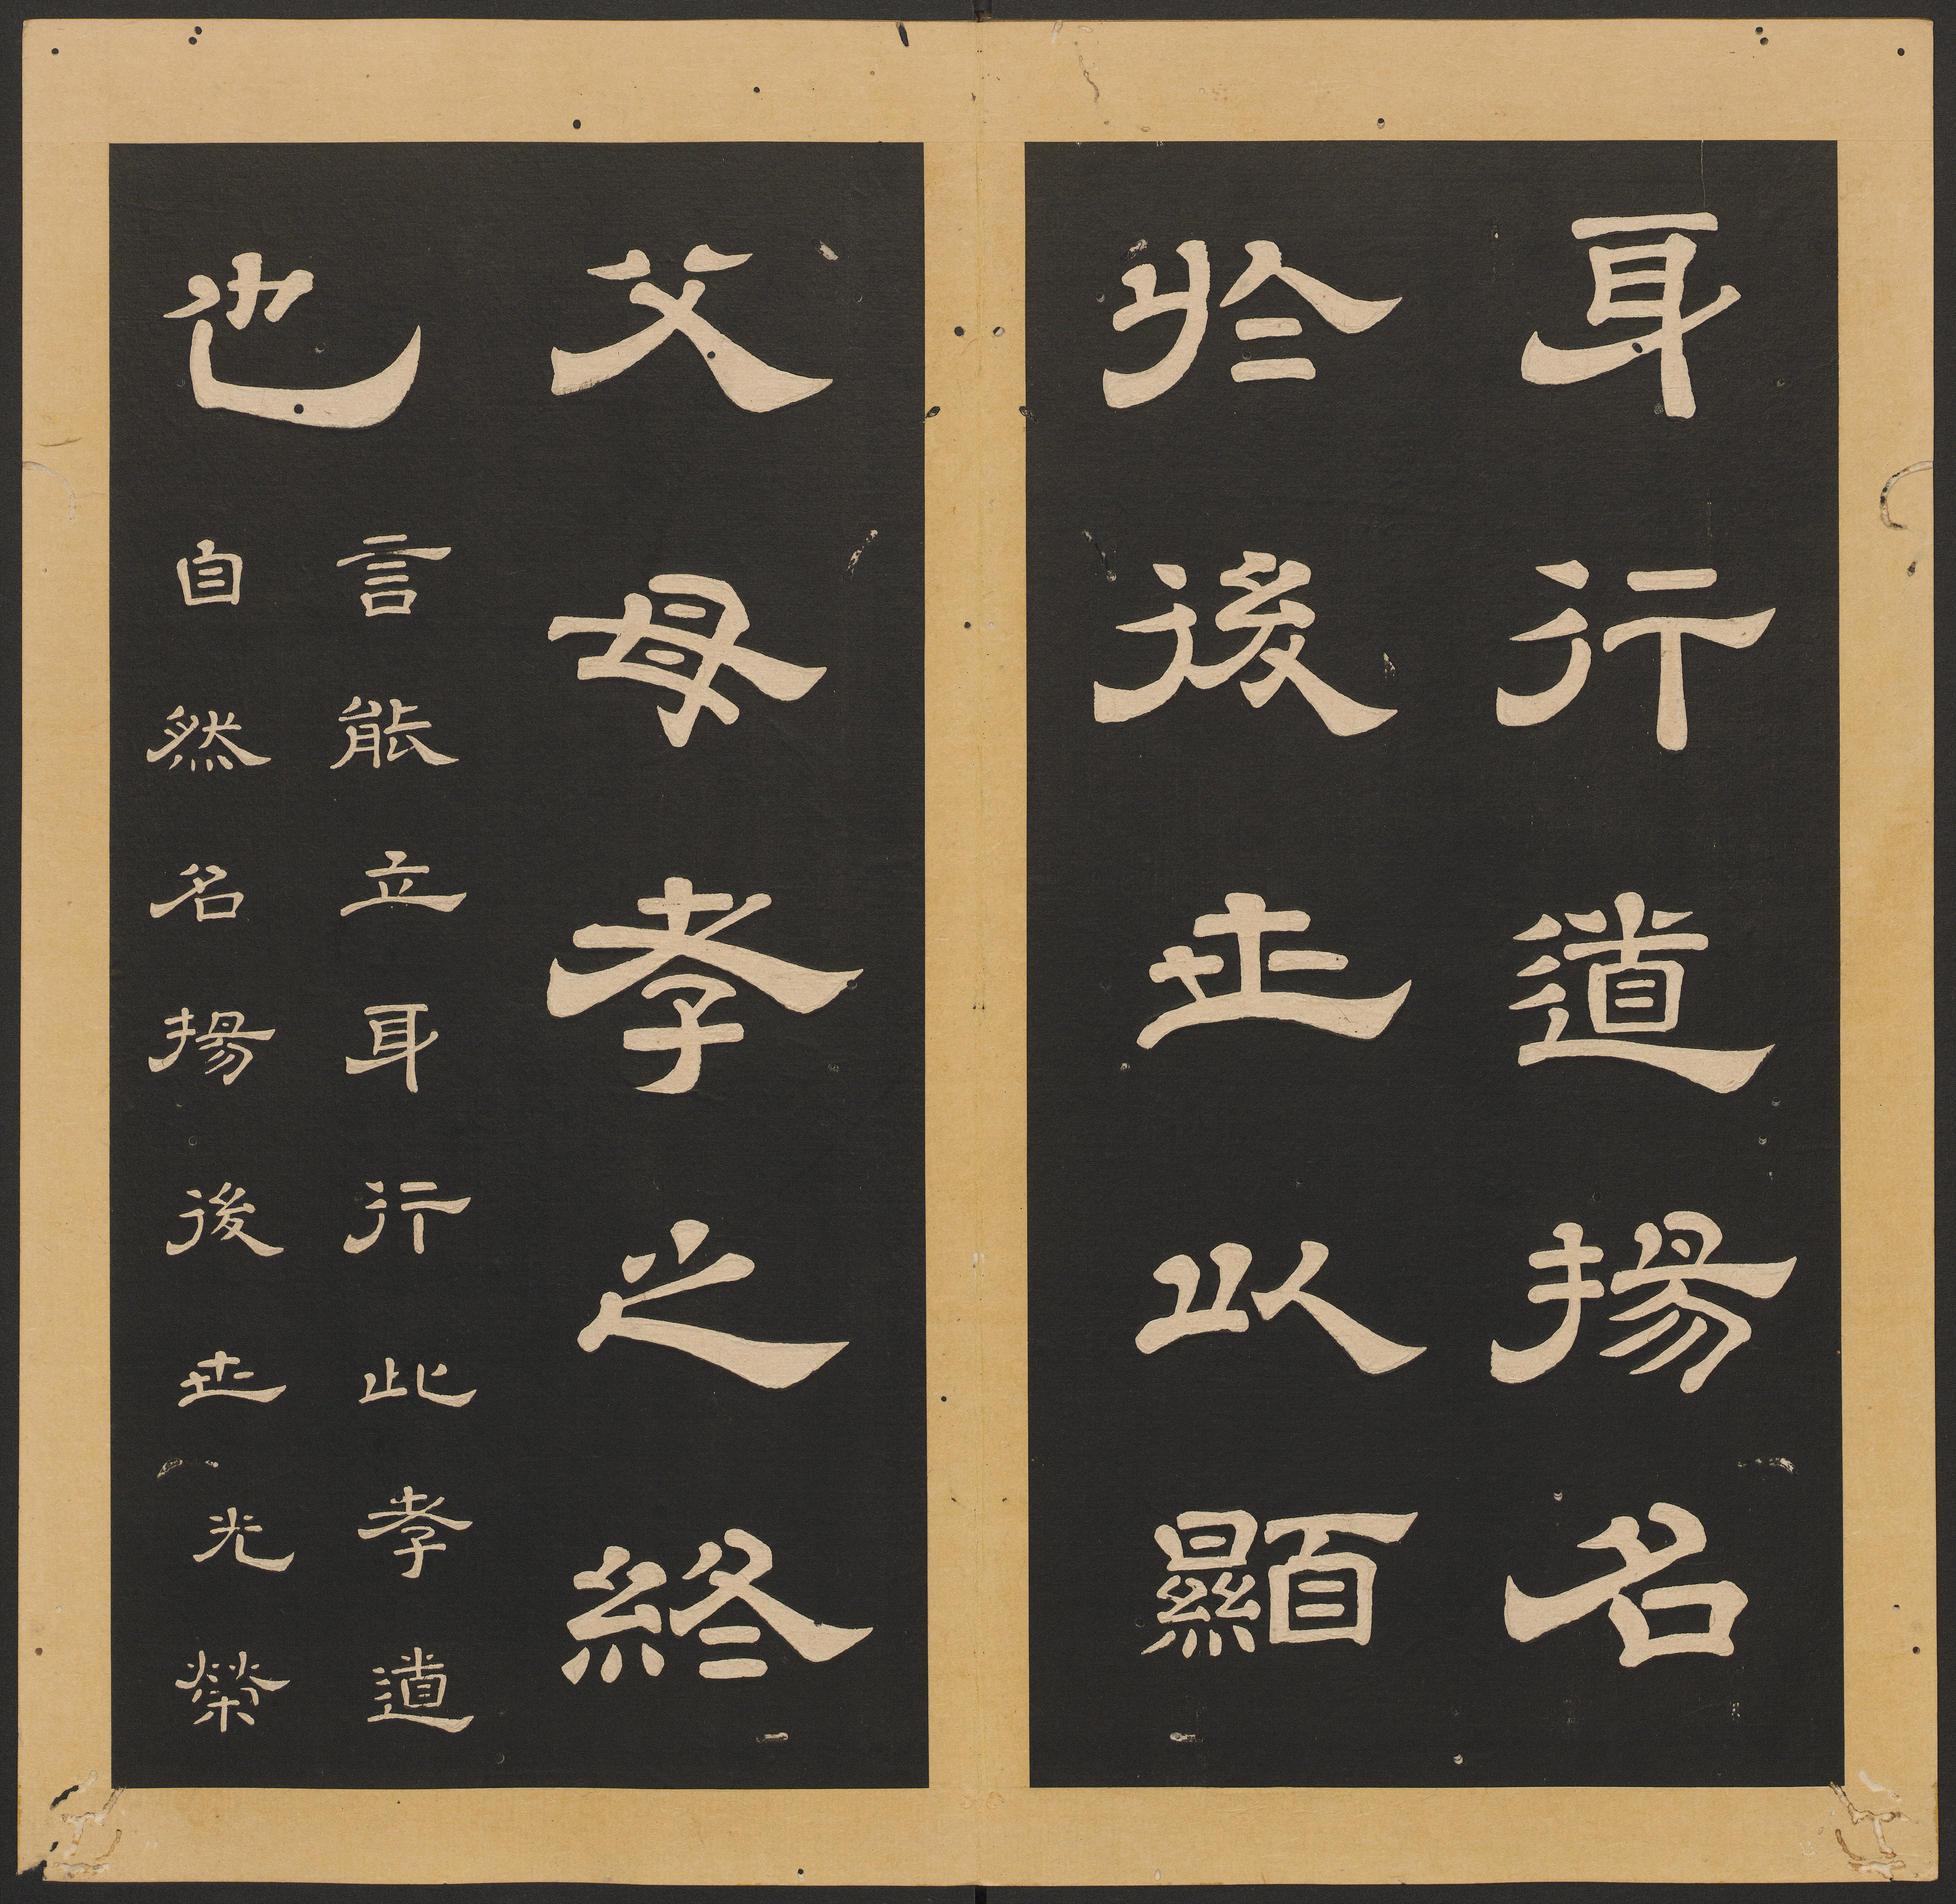 身行道揚名
於後世以顯
父母孝之終
也
言能立身行此孝道
自然名揚後世光榮